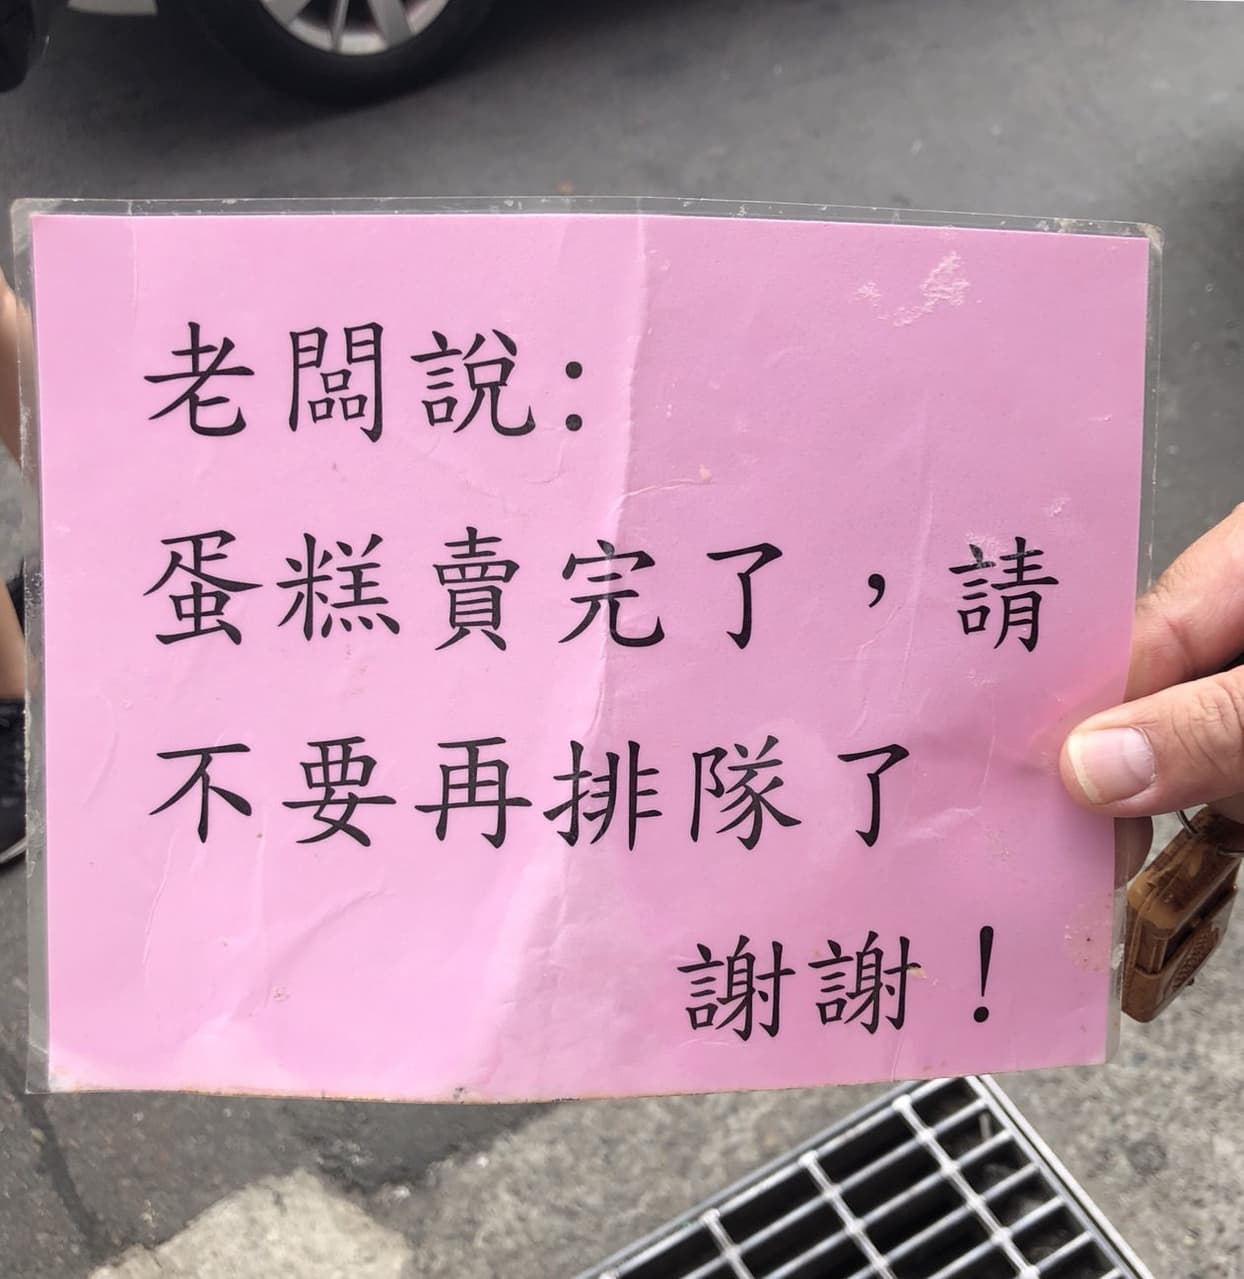 老闆說：
蛋糕賣完了，請
不要再排隊了
謝謝！